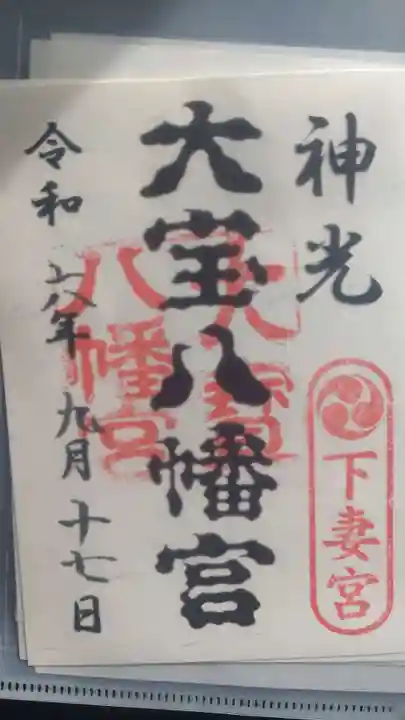 神光
下妻宮
大宝八幡宮
大寶
八幡宮
令和六年九月十七日